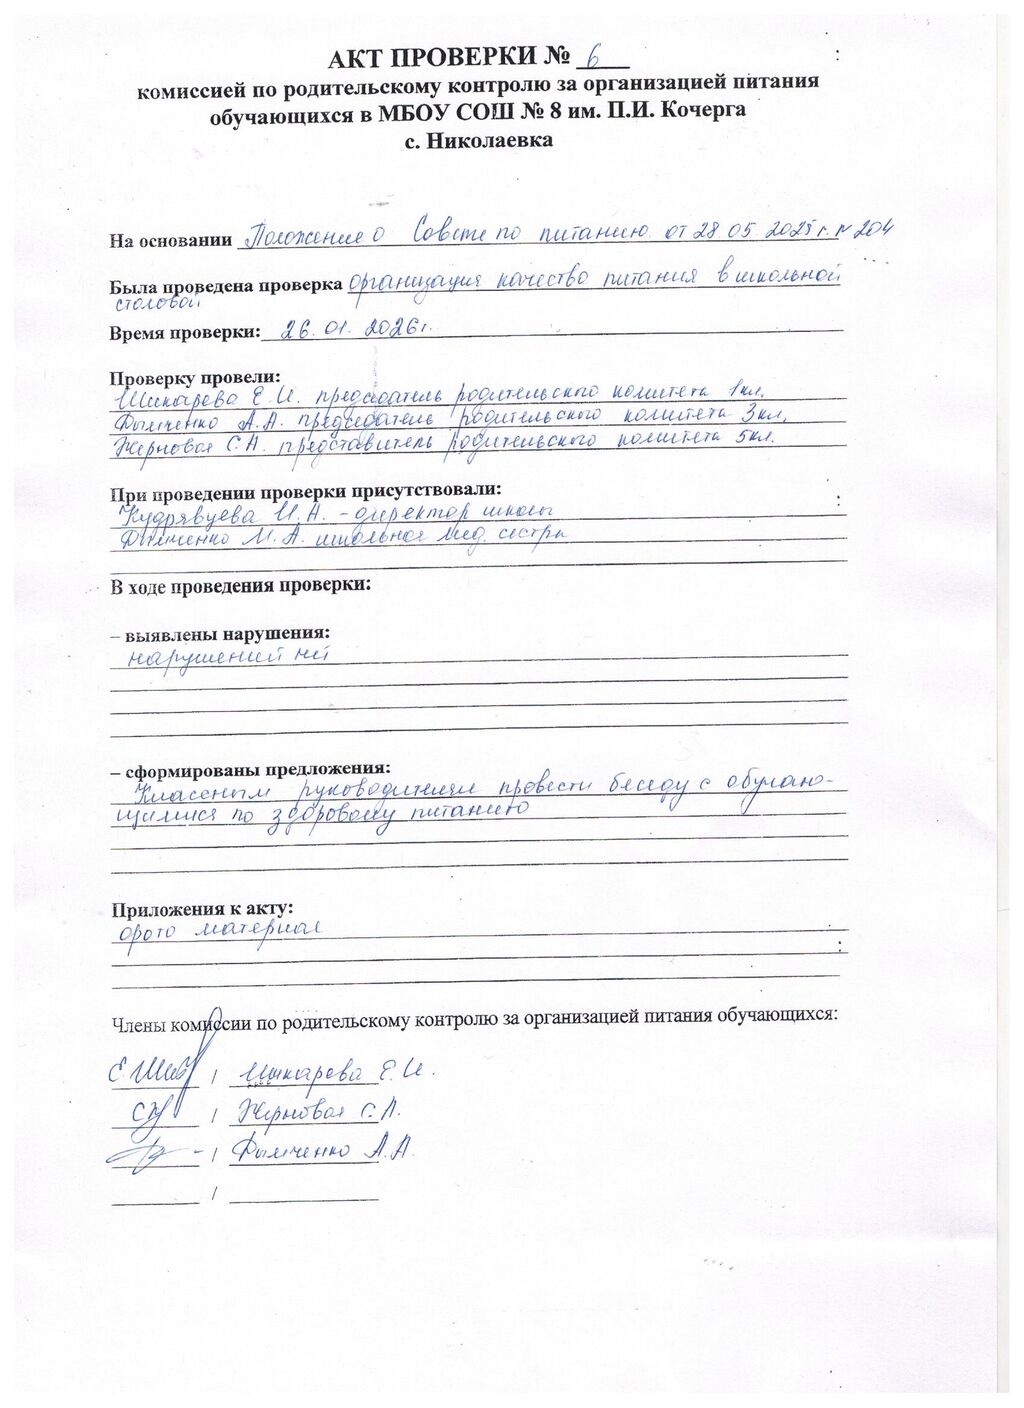 АКТ ПРОВЕРКИ № 6
комиссией по родительскому контролю за организацией питания
обучающихся в МБОУ СОШ № 8 им. П.И. Кочерга
с. Николаевка
На основании Положение о Совете по питанию от 28.05.2025 г. № 204
Была проведена проверка организация качество питания в школьной
столовой
Время проверки: 26.01.2026г.
Проверку провели:
Шикарева Е.И. председатель родительского комитета 1кл.
Дымченко А.А. председатель родительского комитета 3кл.
Жерновая С.А. представитель родительского комитета 5кл.
При проведении проверки присутствовали:
Кудрявцева И.А. - директор школы
Дымченко М.А. школьная мед. сестра
В ходе проведения проверки:
– выявлены нарушения:
нарушений нет
– сформированы предложения:
Классным руководителям провести беседу с обучаю-
щимися по здоровому питанию
Приложения к акту:
фото материал
Члены комиссии по родительскому контролю за организацией питания обучающихся:
/ Шикарева Е.И.
/ Жерновая С.А.
/ Дымченко А.А.
/